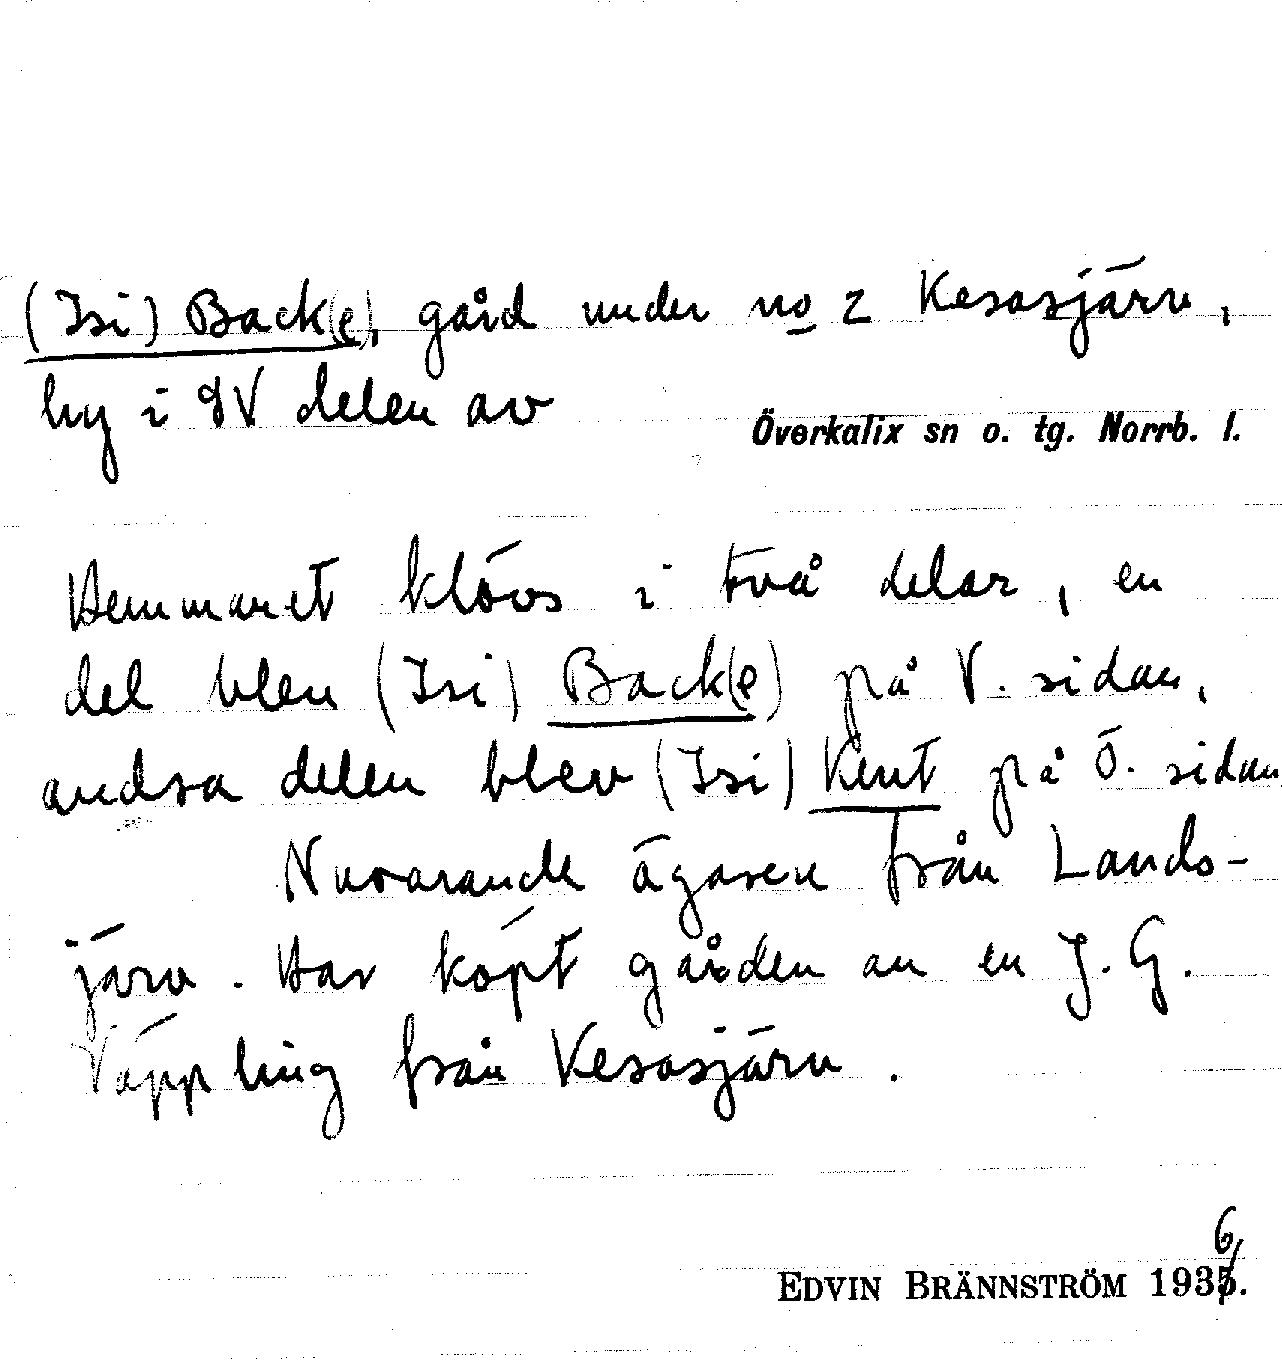 (Isi) Back(e), gård under no 2 Kesasjärv,
by i SV delen av
Överkalix sn o. tg. Norrb. l.
Hemmanet klövs i två delar, en
del blev (Isi) Back(e) på V. sidan,
andra delen blev (Isi) Kent på Ö. sidan
Nuvarande ägaren från Lands-
järv. Har köpt gården av en J. G.
Väppling från Kesasjärv.
6
EDVIN BRÄNNSTRÖM 1935.